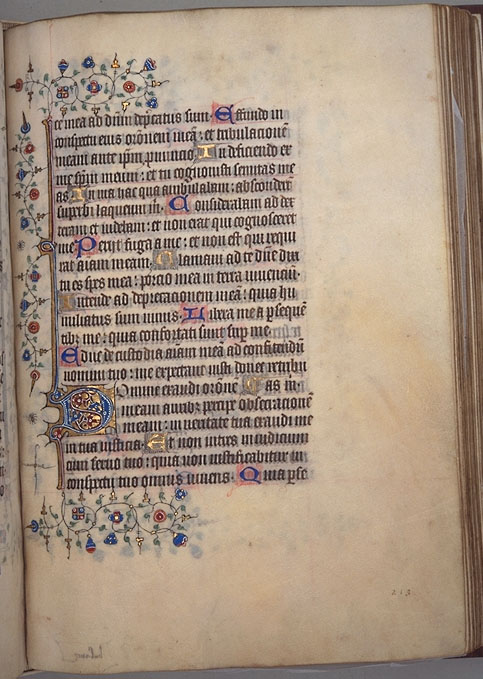 ce mea ad dñm dep̃catus sum. Effundo in
conspectu eius or̃onem meã: et tribulacionẽ
meam ante ip̃m pronucio. In deficiendo ex
me sp̃m meum: et tu cognouisti semitas me
as. In uia hac qua ambulabam: absconderũt
superbi laqueum m̃. Considerabam ad dex
teram et uidebam: et non erat qui cognosceret
me. Perijt fuga a me: et non est qui requi
rat aĩam meam. Clamaui ad te dñe dixi
tu es spes mea: porcio mea in terra uiuenciũ.
Intende ad deprecacionem meã: quia hu
miliatus sum nimis. Libera me a p̃sequẽ
tib; me: quia confortati sunt sup̃ me.
Educ de custodia aĩam meã ad confitendũ
nomini tuo: me expectant iusti donec retribu
Domine exaudi or̃onẽ as m̃.
meam aurib; percipe obsecracionẽ
meam: in ueritate tua exaudi me
in tua iusticia. Et non intres in iudicium
cum seruo tuo: quia non iustificabitur in
conspectu tuo omnis uiuens. Quia p̃se
213